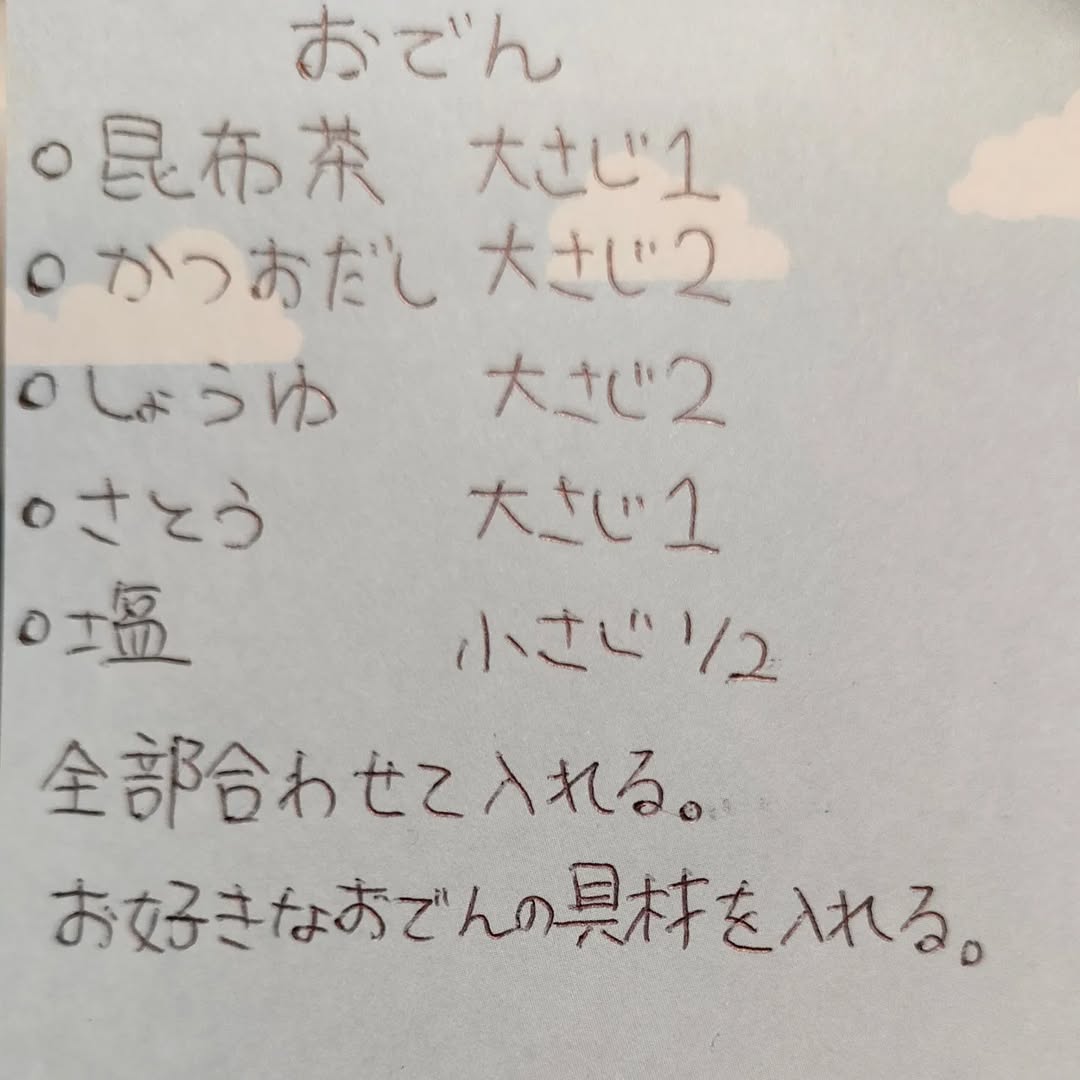 おでん
○昆布茶 大さじ1
○かつおだし 大さじ2
○しょうゆ 大さじ2
○さとう 大さじ1
○塩 小さじ1/2
全部合わせて入れる。
お好きなおでんの具材を入れる。